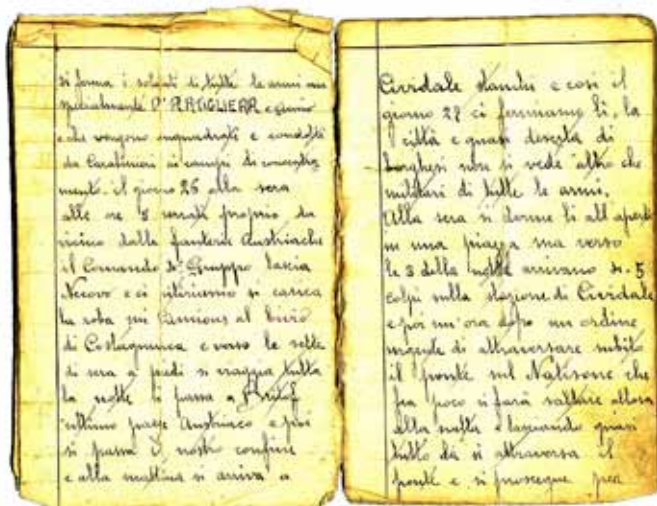 si forma i soldati di tutte le armi ma
specialmente D'ARTIGLIERA e Genio
che vengono inquadrati e condotti
da Carabinieri ai campi di concentra
mento. il giorno 26 alla sera
alle ore 5 serrati proprio da
vicino dalle fanterie Austriache
il Comando di Gruppo lascia
e ci ritiriamo si carica
la roba sui Camions al bivio
di e verso le sette
di sera a piedi si viaggia tutta
la notte si passa a
ultimo paese Austriaco e poi
si passa il nostro confine
e alla mattina si arriva a
Cividale stanchi e così il
giorno 27 ci fermiamo lì, la
città e quasi deserta di
borghesi non si vede altro che
militari di tutte le armi.
Alla sera si dorme lì all'aperto
in una piazza ma verso
le 3 della notte arrivano 4-5
colpi sulla stazione di Cividale
e poi un'ora dopo un ordine
urgente di attraversare subito
il ponte sul Natisone che
fra poco si farà saltare allora
alla svelta e lasciando quasi
tutto da si attraversa il
ponte e si prosegue per